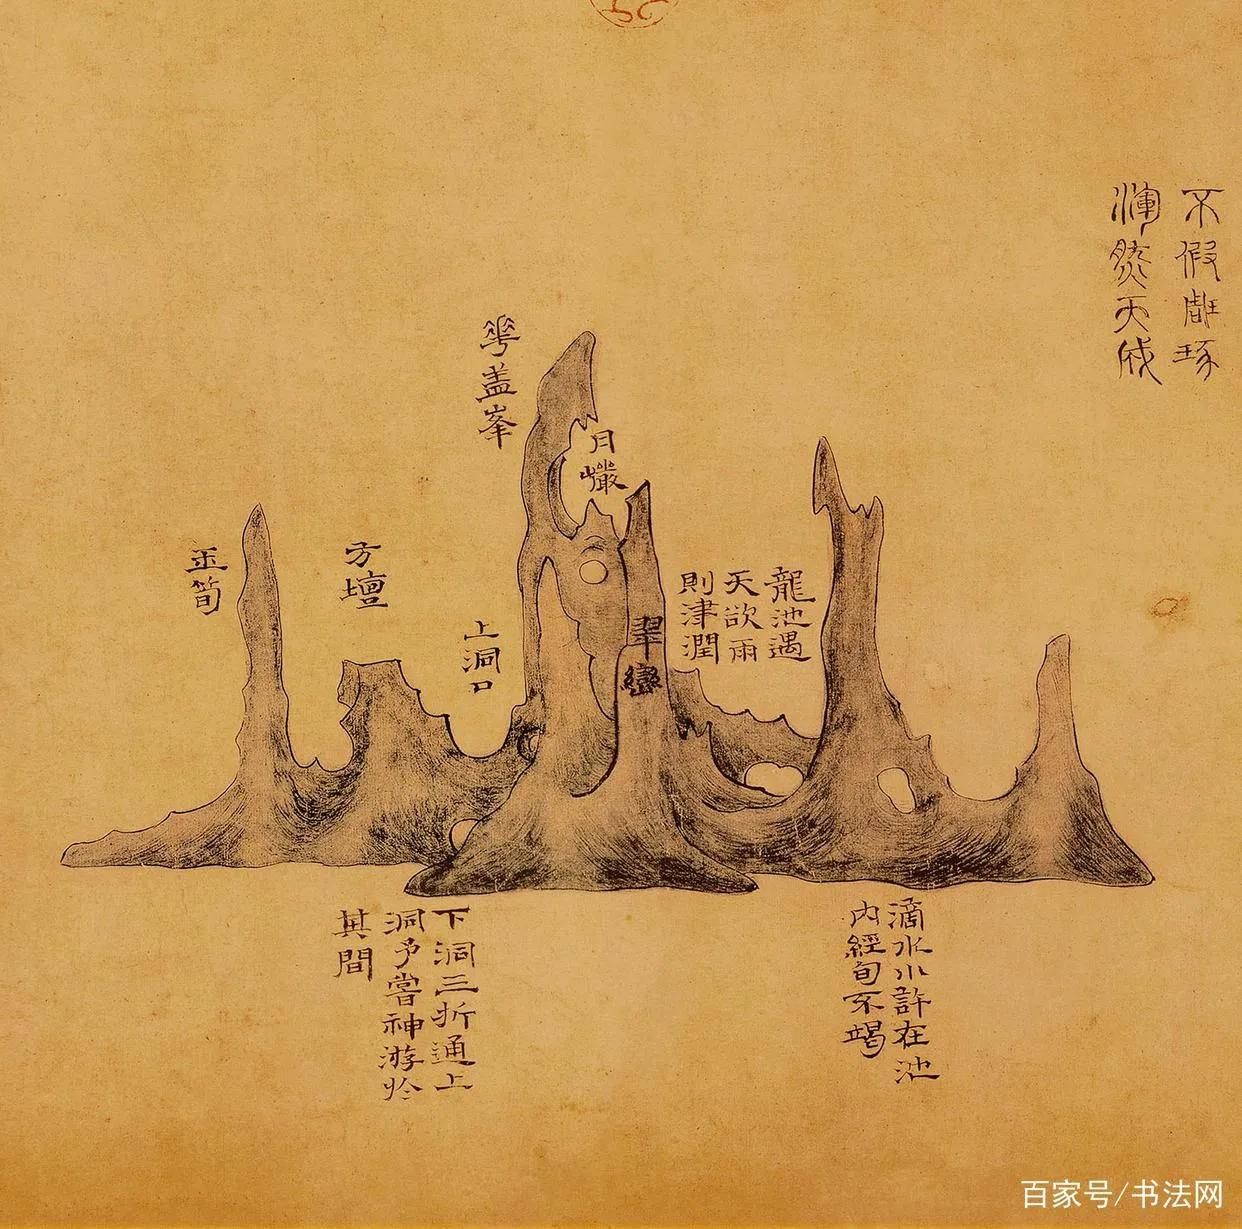 不假雕琢
渾然天成
龍池遇
天欲雨
則津潤
翠巒
月巖
華盖峯
上洞口
方壇
玉筍
滴水小許在池
内經旬不竭
下洞三折通上
洞予嘗神游於
其間
百家号/书法网